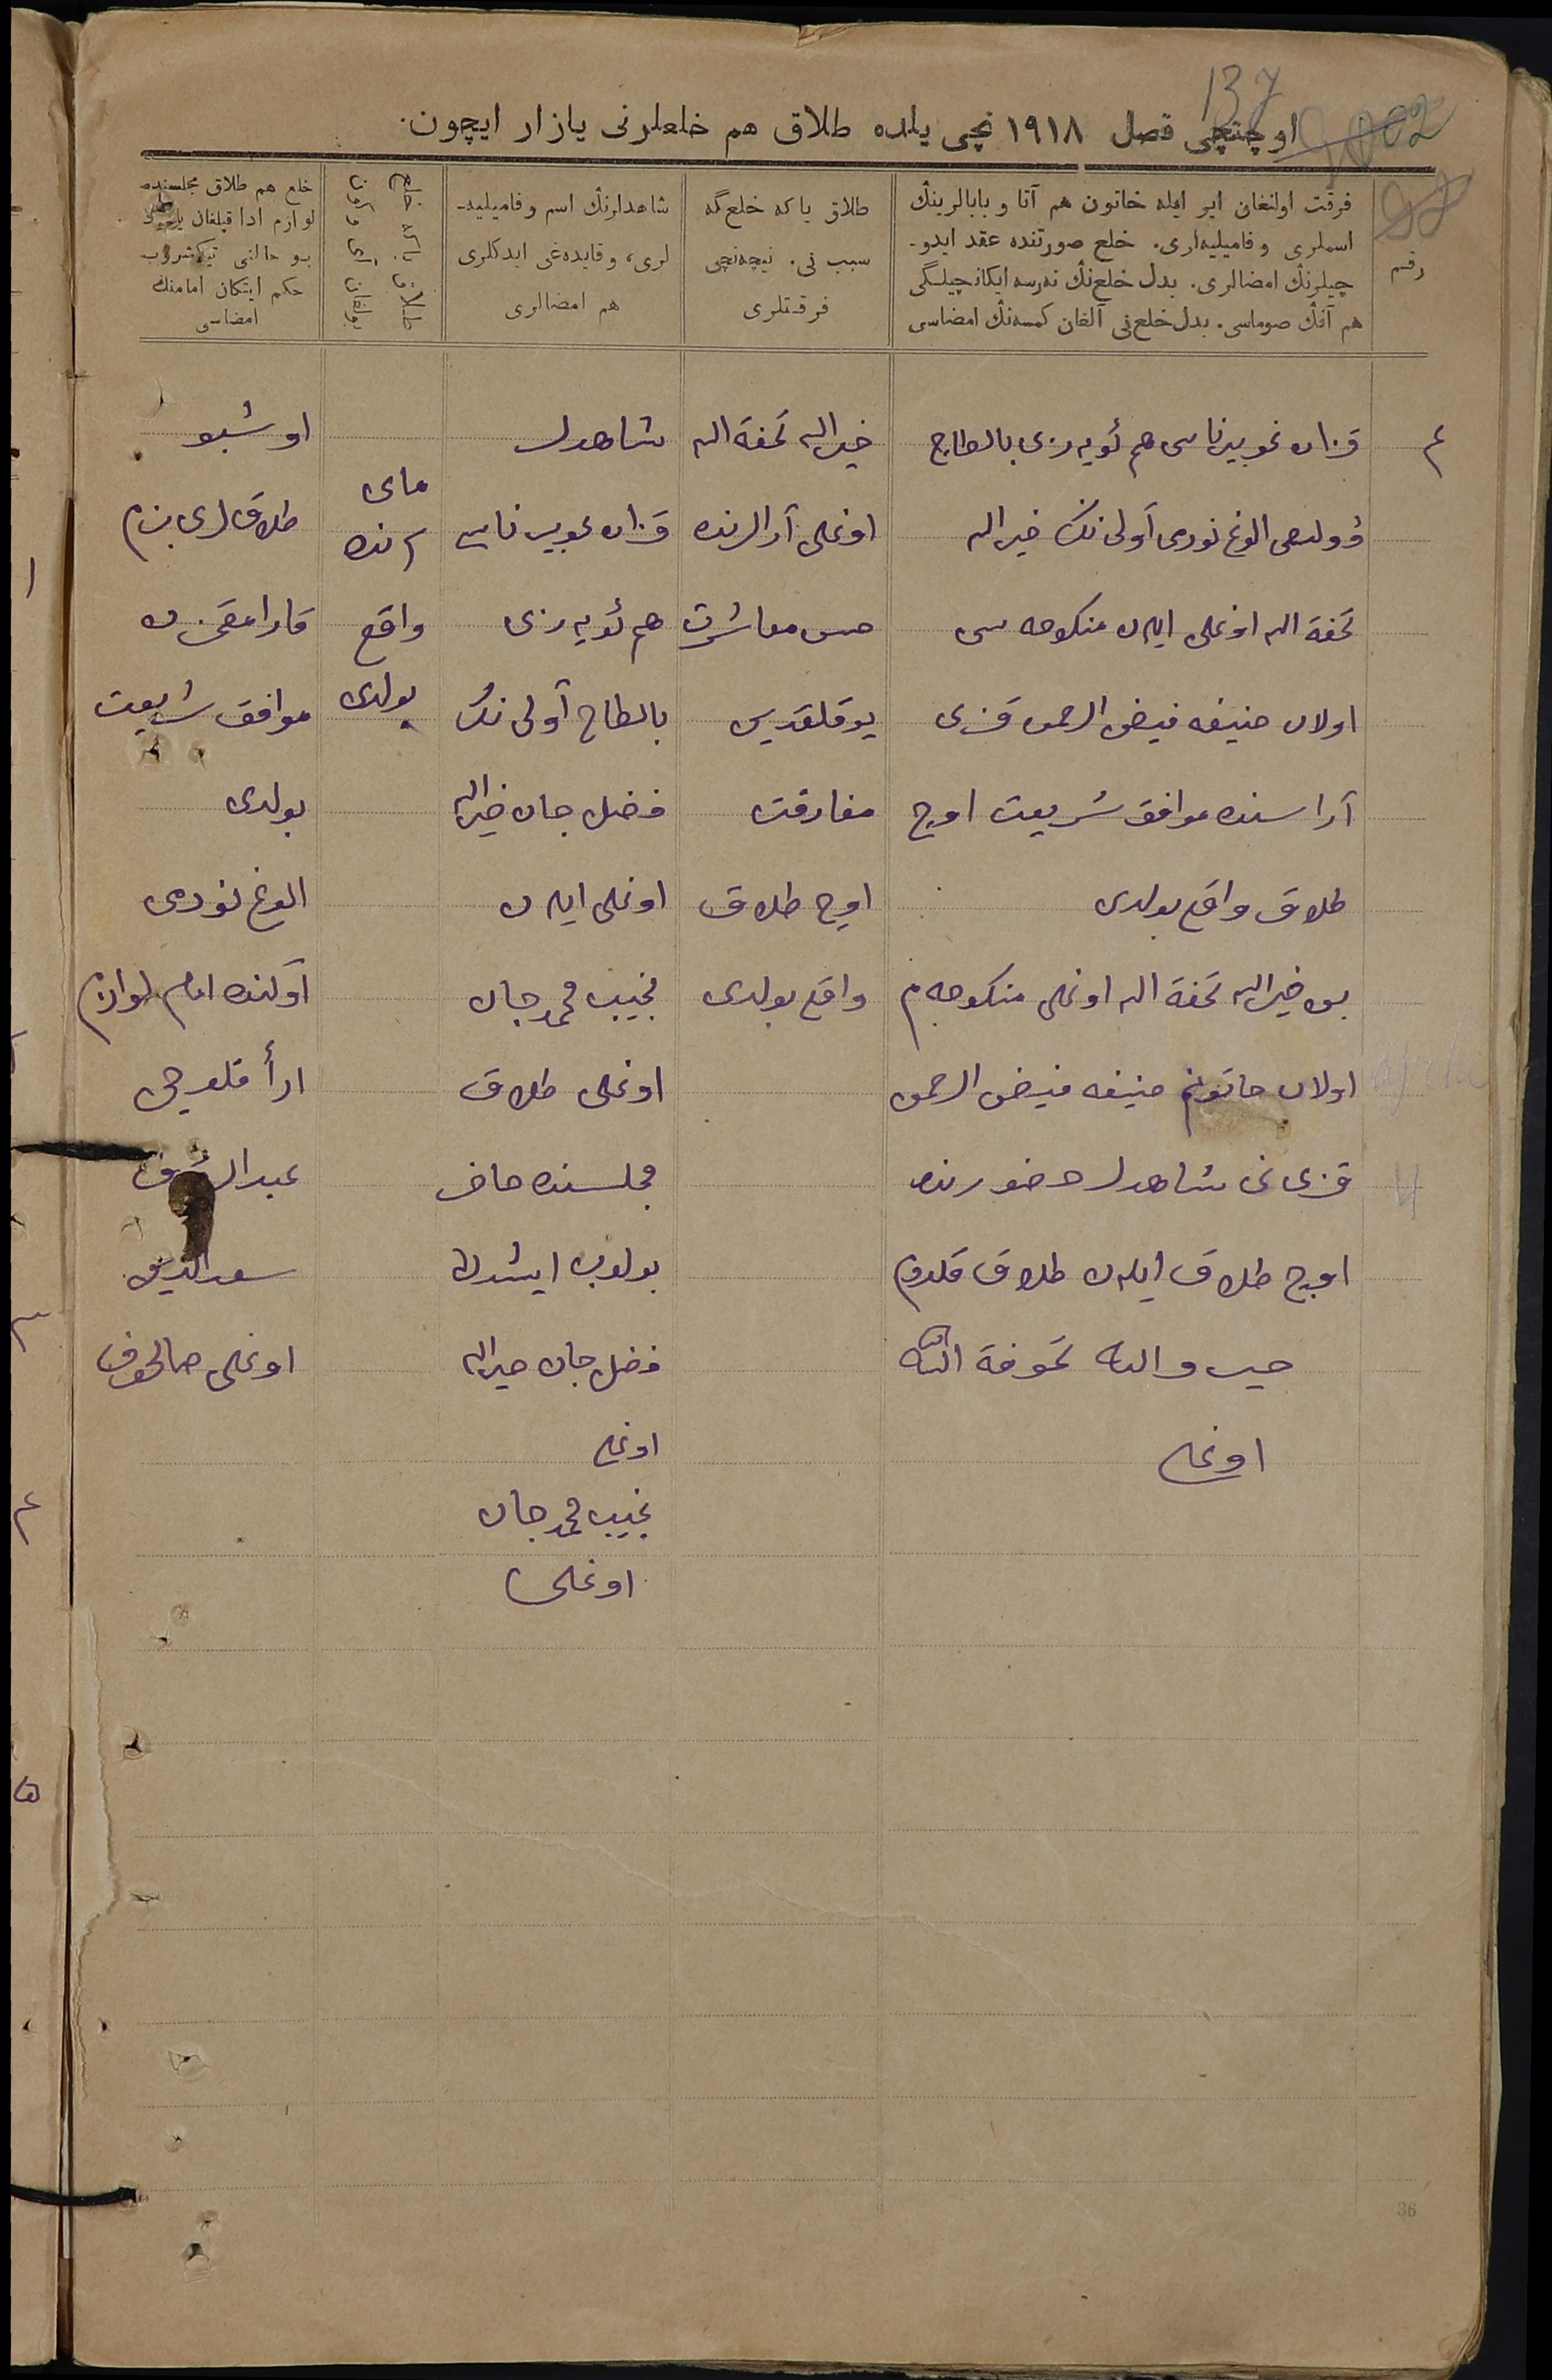 137
02
اوچنچی فصل ۱۹۱۸ نچی یلده طلاق هم خلعلرنی یازار ایچون.
رقم
فرقت اولنغان ایر ایله خاتون هم آتا و بابالرینڭ
اسملری و فامیلیه‌لری. خلع صورتنده عقد ایدو-
چیلرنڭ امضالری. بدل خلع‌نڭ نه‌رسه ایکانچیلگی
هم آنڭ صوماسی. بدل خلع‌نی آلغان کمسه‌نڭ امضاسی
طلاق یا که خلع گه
سبب نی. نیچه‌نچی
فرقتلری
شاهدلرنڭ اسم و فامیلیه-
لری، و قایده‌غی ایدکلری
هم امضالری
خلع هم طلاق مجلسنده
لوازم ادا قیلغان
بو حالنی تیکشروب
حکم ایتکان امامنڭ
امضاسی
۴
قزان غوبیرناسی هم ئویه‌زی بالطاج
وولصی الوغ نورمی آولی‌نڭ خیرالله
تحفة الله اوغلی ایله‌ن منکوحه سی
اولان حنیفه فیض الرحمن قزی
آراسنده موافق شریعت اوچ
طلاق واقع بولدی
بن خیرالله تحفة الله اوغلی منکوحه‌م
اولان خاتونم حنیفه فیض الرحمن
قزی نی شاهدلر حضورنده
اوچ طلاق ایله‌ن طلاق قلدم
تحوفة الله
اوغلی
خیرالله تحفة الله
اوغلی آرالرنده
حسن معاشرت
یوقلقدین
مفارقت
اوچ طلاق
واقع بولدی
شاهدلر
قزان غوبیرناسی
هم ئویه‌زی
بالطاج آولی نڭ
فضل جان خیرالله
اوغلی ایله‌ن
نجیب محمدجان
اوغلی طلاق
مجلسنده حاضر
بولوب ایشتدلر
فضل جان خیرالله
اوغلی
نجیب محمدجان
اوغلی
مای
۲ نده
واقع
بولدی
اوشبو
طلاق لری بزم
قارامقزن
موافق شریعت
بولدی
الوغ نورمی
آولنده امام لوازم
ادأ قلوچی
عبدالرؤف
سعدالدین
اوغلی صالحوف
36